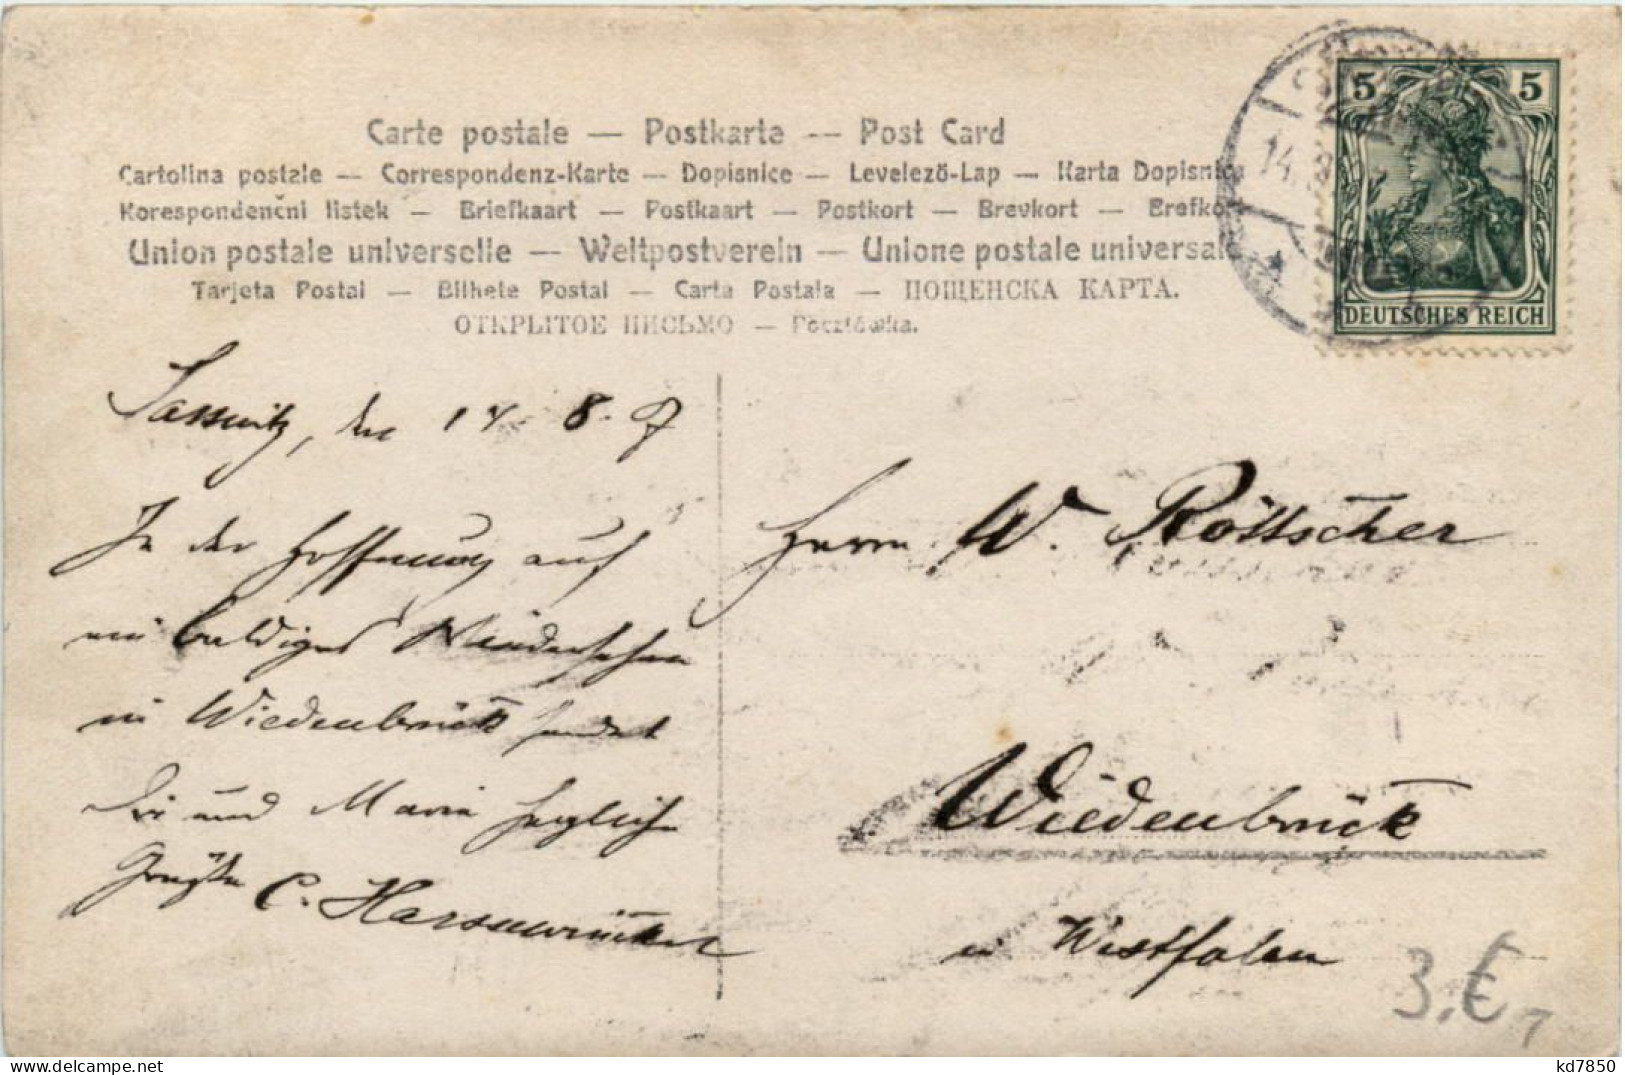 Carte postale — Postkarte -- Post Card
Cartolina postale — Correspondenz-Karte — Dopisnice — Levelező-Lap — Karta Dopisnica
Korespondenčni listek — Briefkaart — Postkaart — Postkort — Brevkort — Brefko
Union postale universelle — Weltpostverein — Unione postale universale
Tarjeta Postal — Bilhete Postal — Carta Postala — ПОЩЕНСКА КАРТА.
ОТКРЫТОЕ ПИСЬМО — Pocztówka.
5 5
DEUTSCHES REICH
14. 8
Sassnitz, den 14. 8. 7
In der Hoffnung auf
ein baldiges Wiedersehen
in Wiedenbrück sendet
Dir und Maria herzliche
Grüße C.
Herrn W. Röttscher
Wiedenbrück
in Westfalen
3.€
kd7850